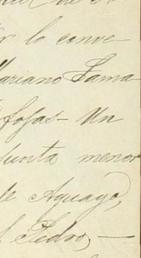 r lo conve-
ariano Lama
fojas - Un
Junta menor
de Aguayo,
Pedro, -